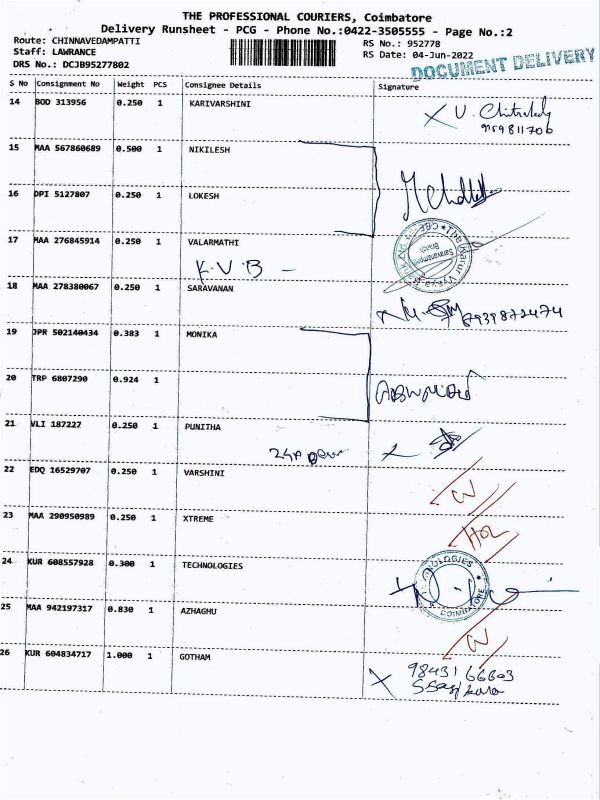 THE PROFESSIONAL COURIERS, Coimbatore
Delivery Runsheet - PCG - Phone No.:0422-3505555 - Page No.:2
Route: CHINNAVEDAMPATTI
RS No.: 952778
Staff: LAWRANCE
RS Date: 04-Jun-2022
DRS No.: DCJB95277802
DOCUMENT DELIVERY
S No Consignment No Weight PCS Consignee Details Signature
14 BOD 313956 0.250 1 KARIVARSHINI
15 MAA 567860689 0.500 1 NIKILESH
16 DPI 5127807 0.250 1 LOKESH
17 MAA 276845914 0.250 1 VALARMATHI
K.V.B -
18 MAA 278380067 0.250 1 SARAVANAN
19 JPR 502140434 0.383 1 MONIKA
20 TRP 6807290 0.924 1
21 VLI 187227 0.250 1 PUNITHA
22 EDQ 16529707 0.250 1 VARSHINI
23 MAA 290950989 0.250 1 XTREME
24 KUR 608557928 0.300 1 TECHNOLOGIES
COIMBATORE
25 MAA 942197317 0.830 1 AZHAGHU
26 KUR 604834717 1.000 1 GOTHAM